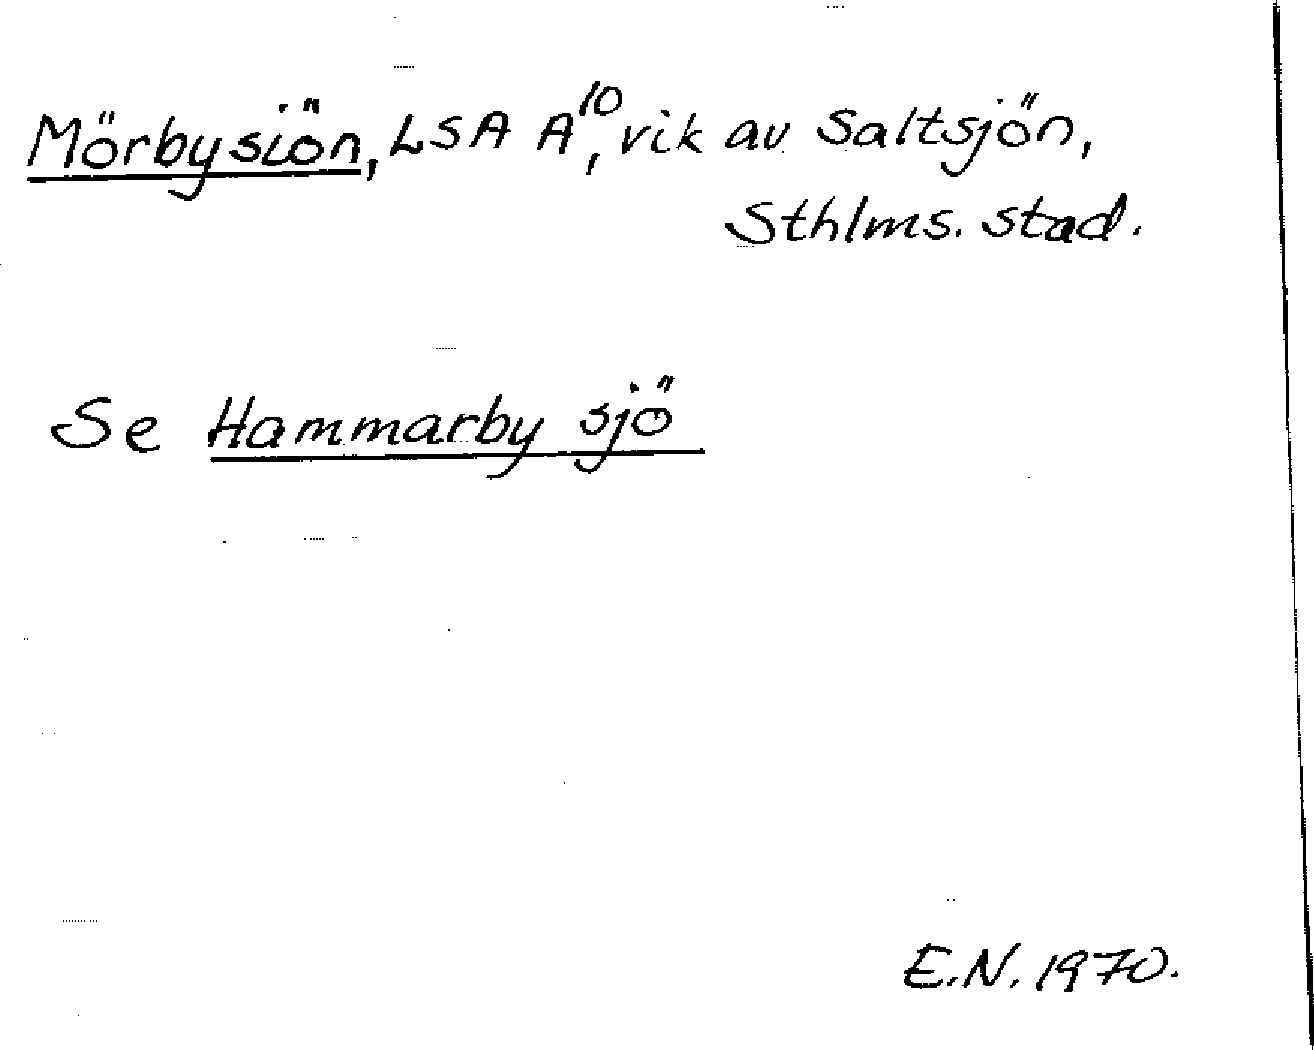 Mörbysjön, LSA A¹⁰, vik av Saltsjön,
Sthlms. stad.
Se Hammarby sjö
E.N. 1970.